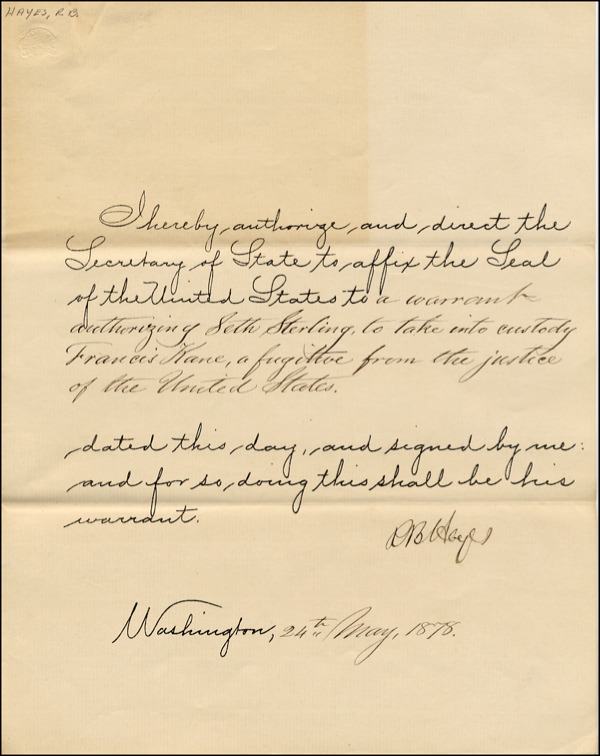 HAYES, R.B.
I hereby authorize and direct the
Secretary of State to affix the Seal
of the United States to a warrant
authorizing Seth Sterling, to take into custody
Francis Kane, a fugitive from the justice
of the United States.
dated this day, and signed by me:
and for so doing this shall be his
warrant.
R B Hayes
Washington, 24th May, 1878.